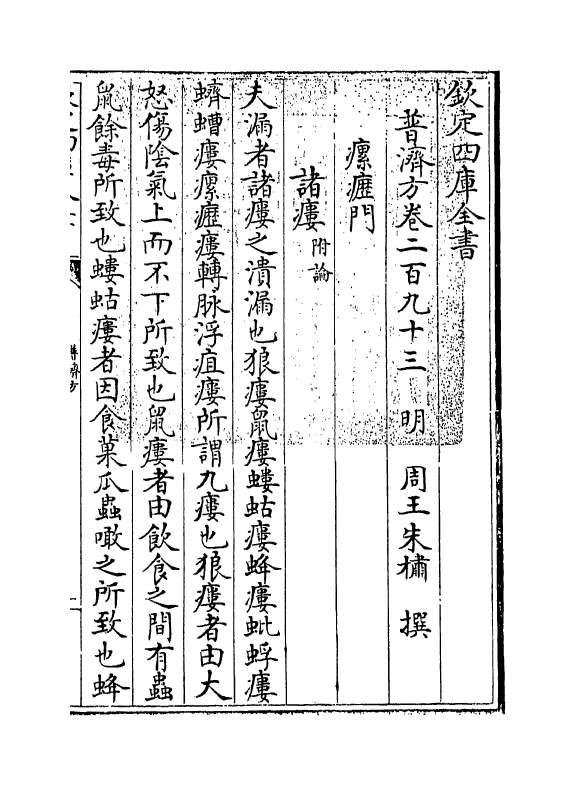 欽定四庫全書
普濟方卷二百九十三 明 周王朱橚 撰
瘰癧門
諸瘻附論
夫漏者諸瘻之潰漏也狼瘻鼠瘻螻蛄瘻蜂瘻蚍蜉瘻
蠐螬瘻瘰癧瘻轉脉浮疽瘻所謂九瘻也狼瘻者由大
怒傷陰氣上而不下所致也鼠瘻者由飲食之間有蟲
鼠餘毒所致也螻蛄瘻者因食菓瓜蟲噉之所致也蜂
普濟方